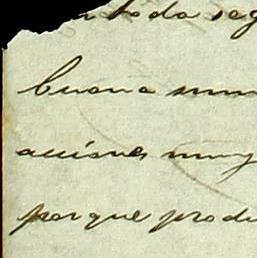 toda seg
buena mun
acciones muy
porque produ